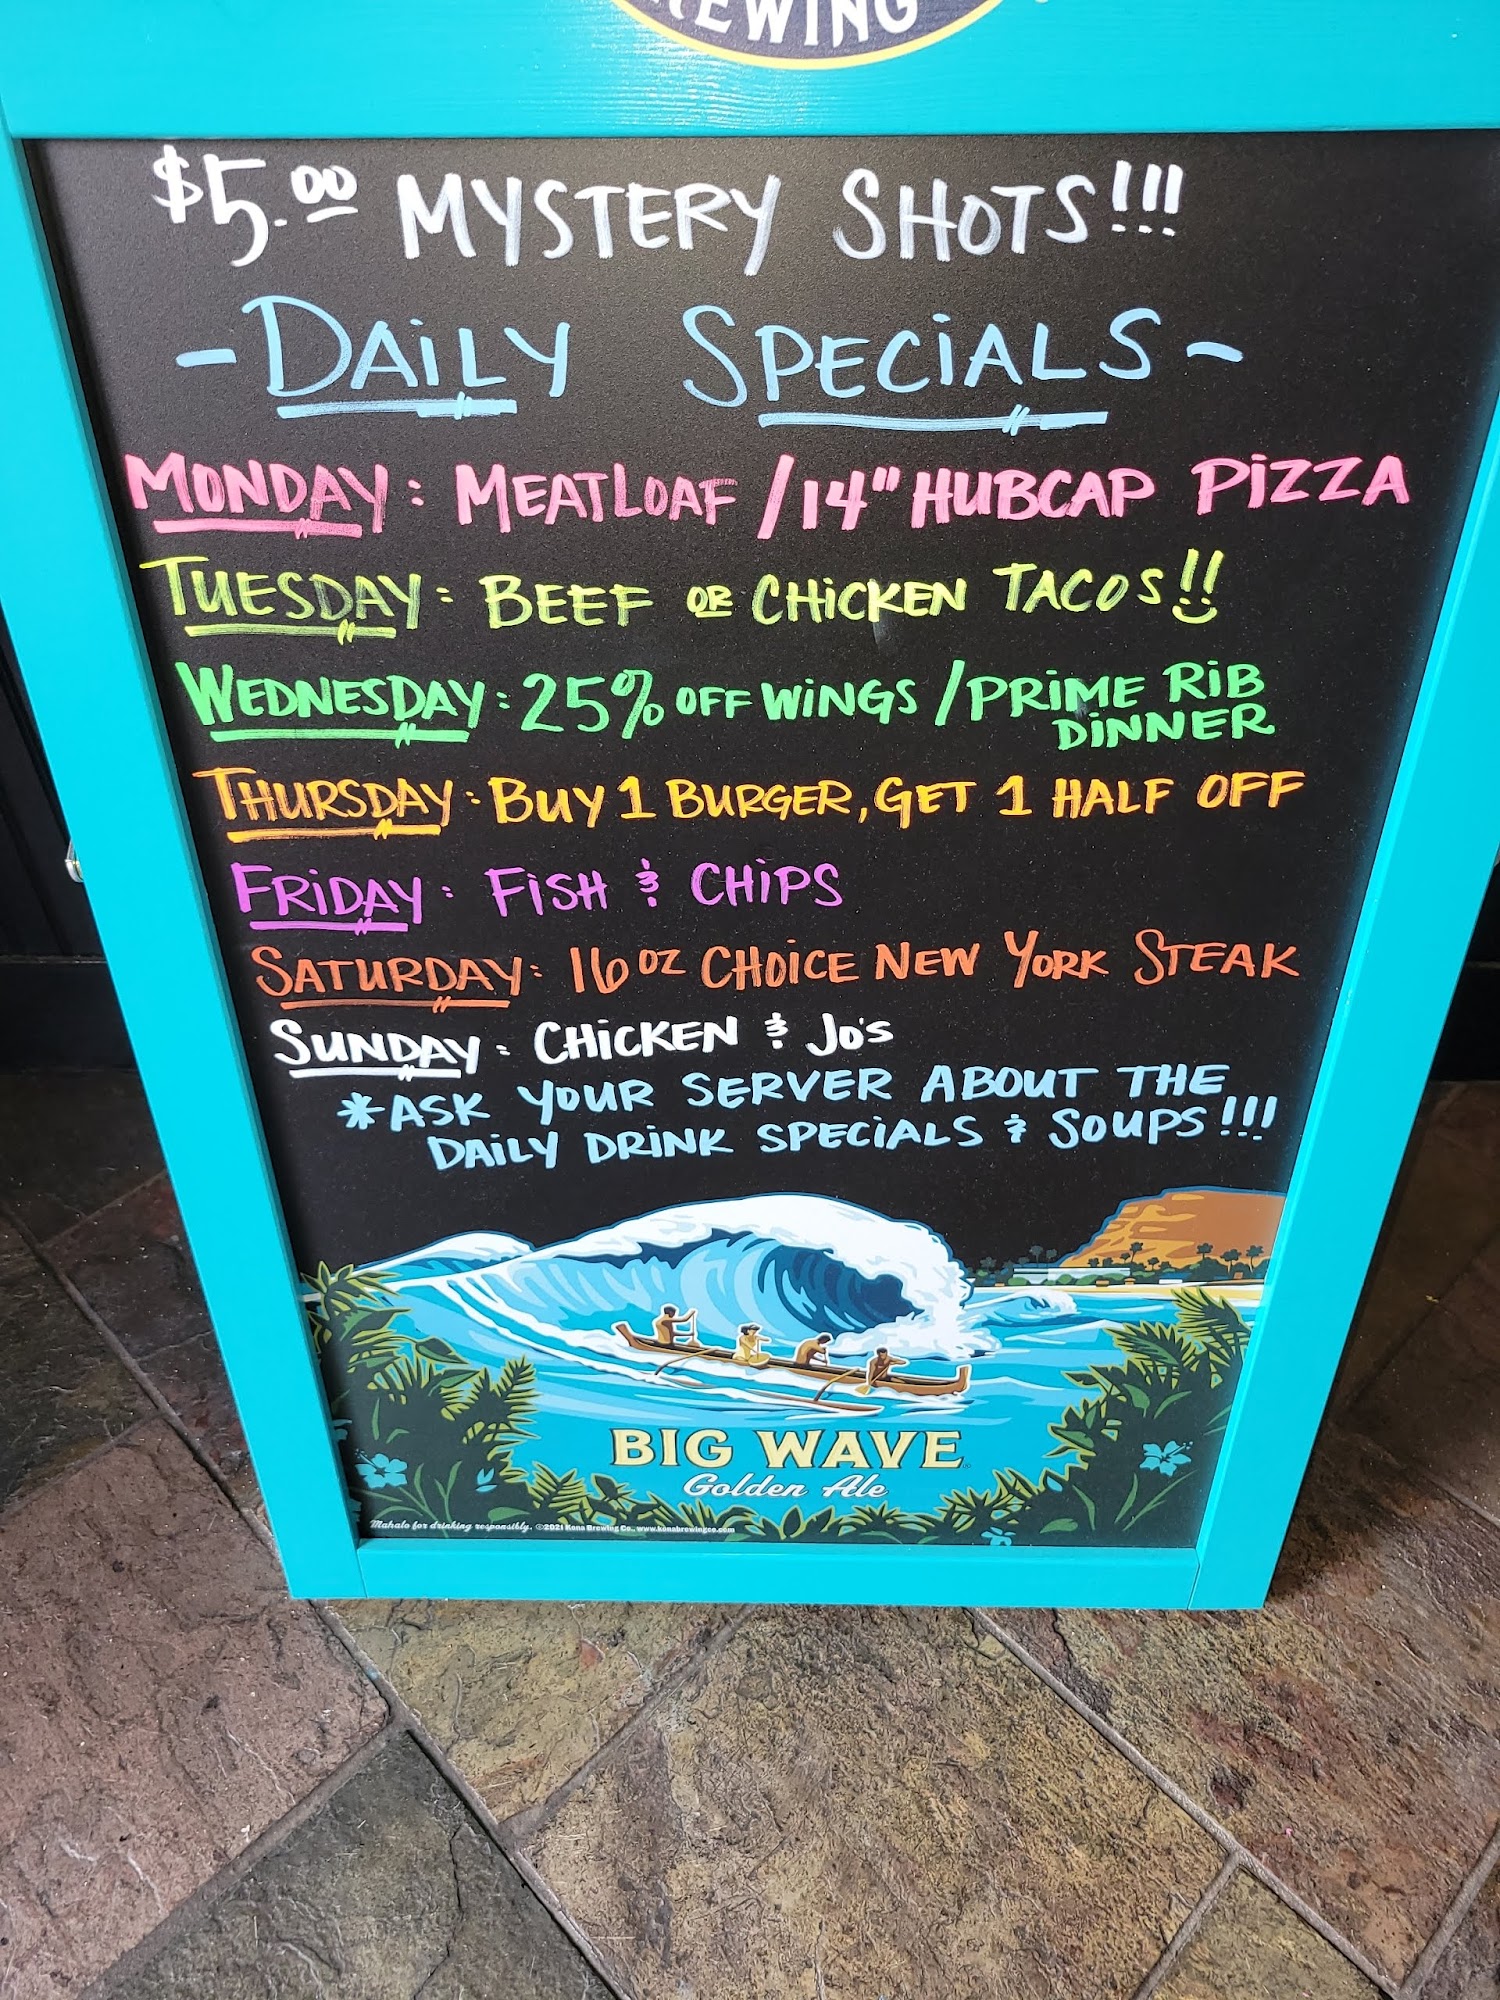 EWING
$5.00 MYSTERY SHOTS!!!
- DAiLY SPECiALS -
MONDAY: MEATLOAF / 14" HUBCAP PiZZA
TUESDAY: BEEF OR CHiCKEN TACOS!!
WEDNESDAY: 25% OFF WiNGS / PRiME RiB
DiNNER
THURSDAY: BUY 1 BURGER, GET 1 HALF OFF
FRiDAY: FiSH & CHiPS
SATURDAY: 16 OZ CHOiCE NEW YORK STEAK
SUNDAY: CHiCKEN & JO'S
*ASK YOUR SERVER ABOUT THE
DAiLY DRiNK SPECiALS & SOUPS!!!
BIG WAVE
Golden Ale
Mahalo for drinking responsibly. ©2021 Kona Brewing Co., www.konabrewingco.com